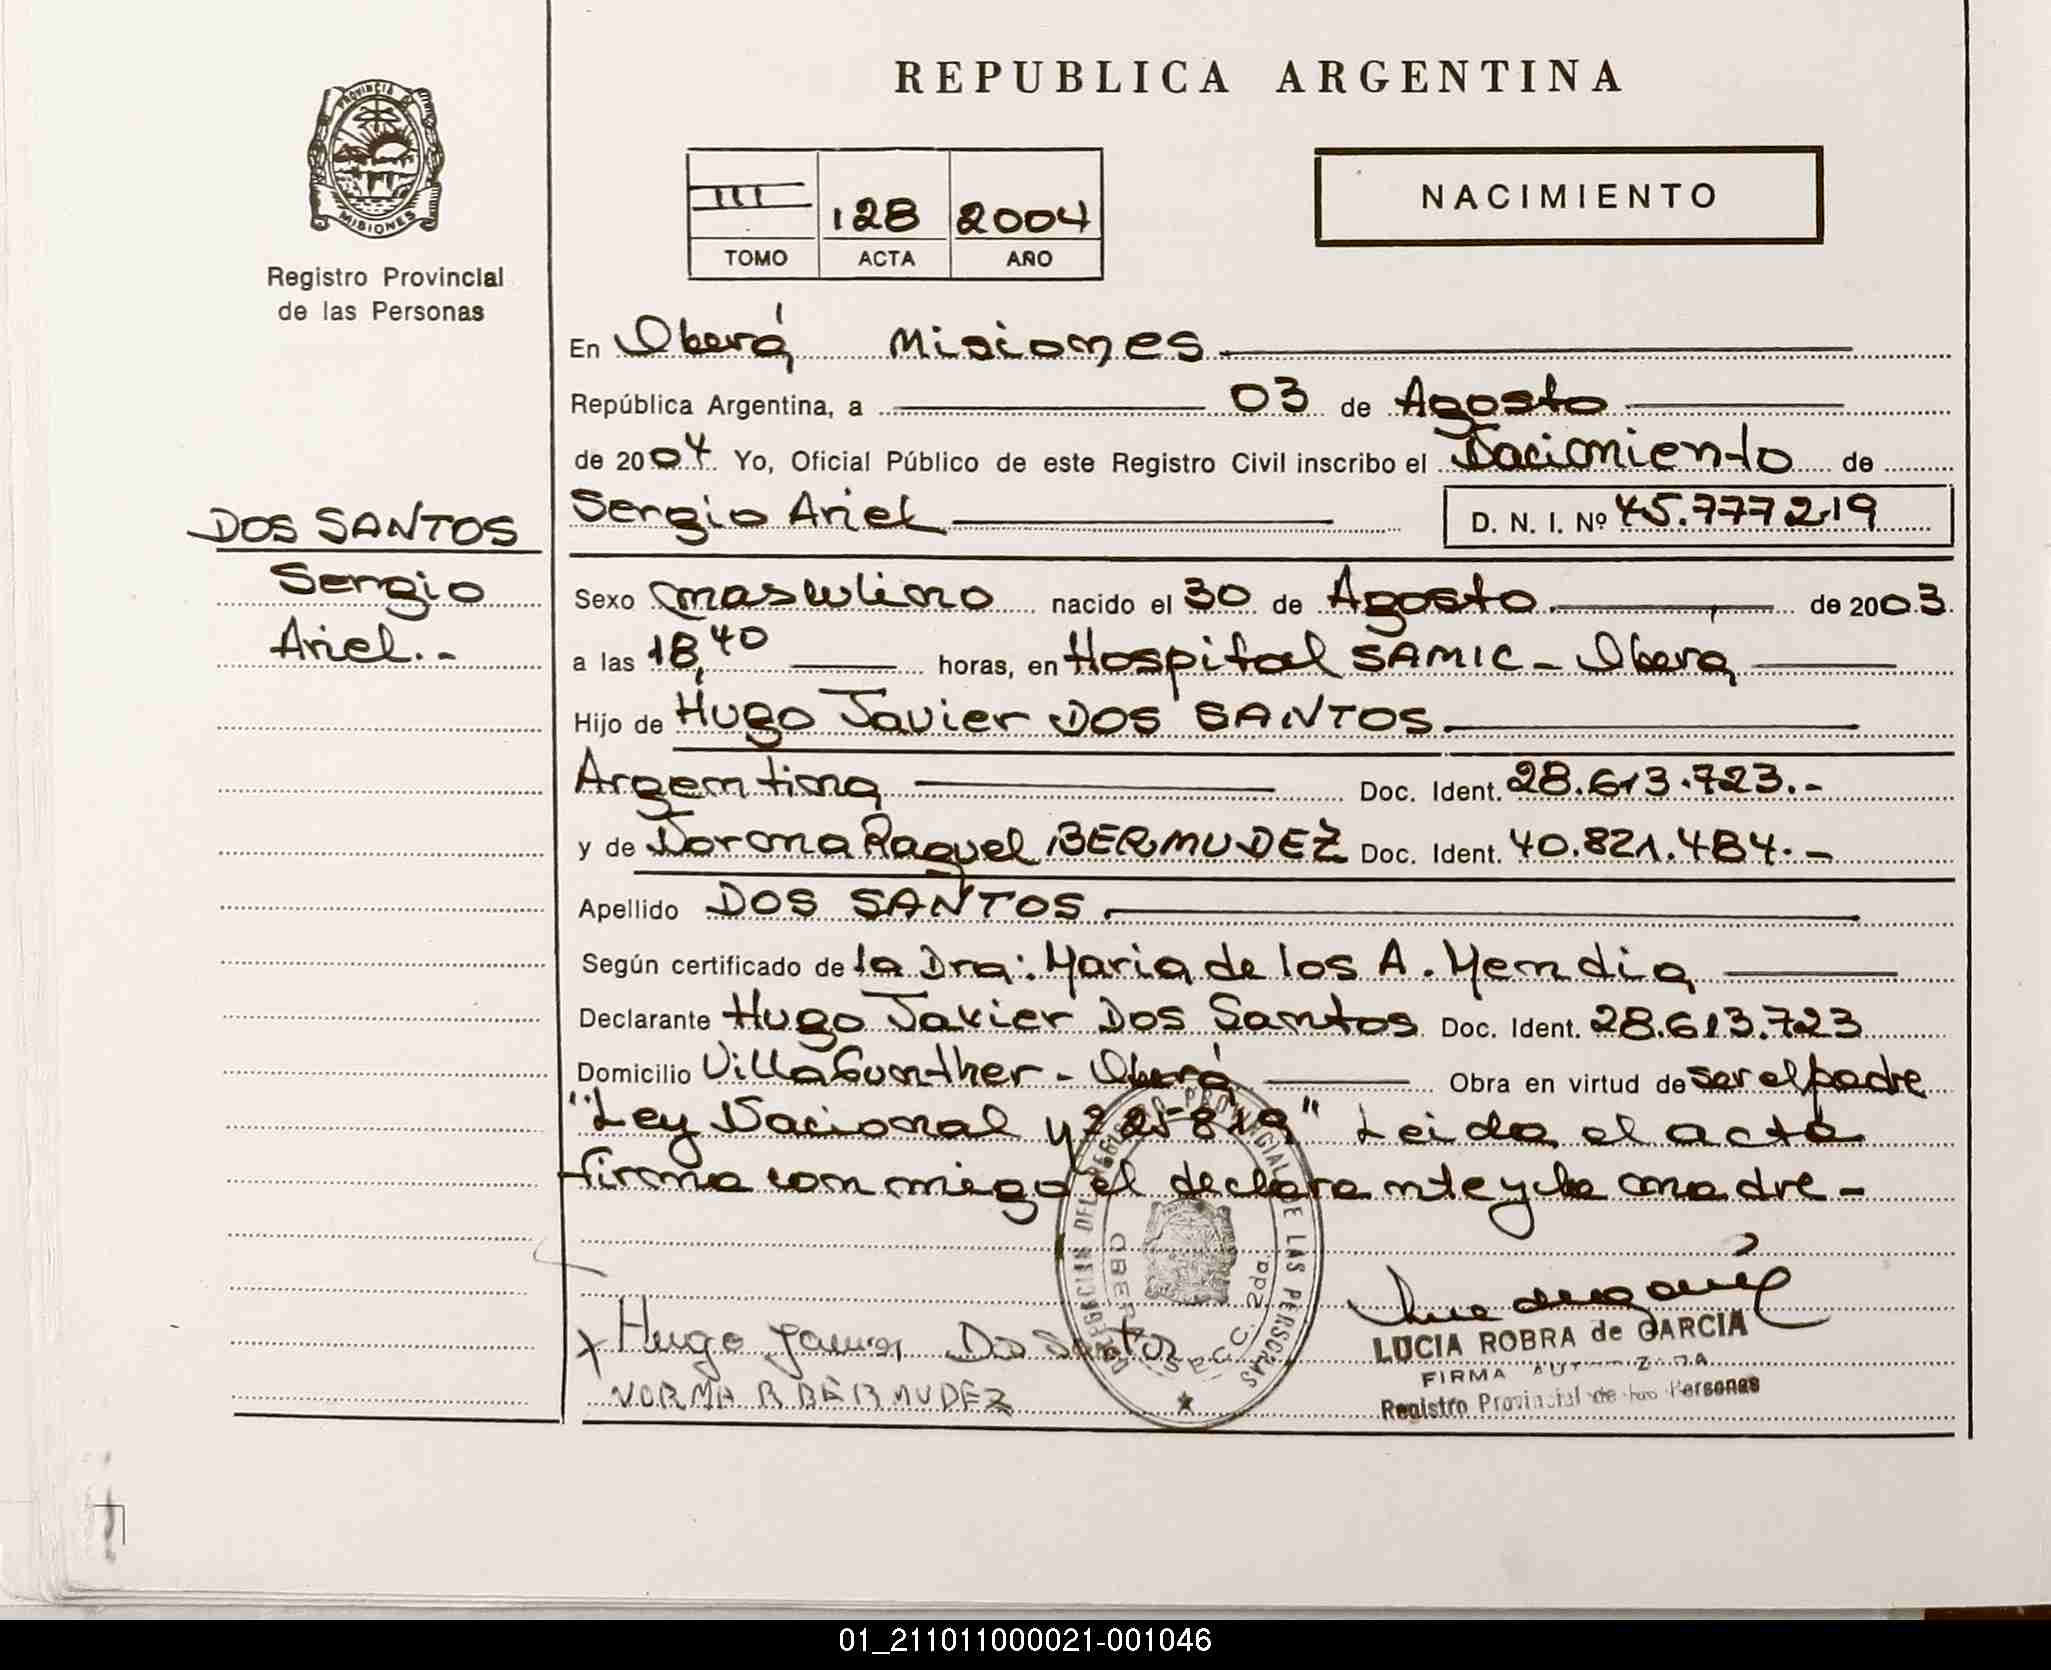 REPUBLICA ARGENTINA
PROVINCIA DE MISIONES
Registro Provincial
de las Personas
III 128 2004
TOMO ACTA AÑO
NACIMIENTO
En Oberá Misiones
República Argentina, a 03 de Agosto
de 2004 Yo, Oficial Público de este Registro Civil inscribo el Nacimiento de
Sergio Ariel D. N. I. Nº 45.777219
DOS SANTOS
Sergio
Ariel.-
Sexo masculino nacido el 30 de Agosto de 2003.
a las 18,40 horas, en Hospital SAMIC - Oberá
Hijo de Hugo Javier DOS SANTOS
Argentina Doc. Ident. 28.613.723.-
y de Norma Raquel BERMUDEZ Doc. Ident. 40.821.484.-
Apellido DOS SANTOS
Según certificado de la Dra: Maria de los A. Mendia
Declarante Hugo Javier Dos Santos Doc. Ident. 28.613.723
Domicilio Villa Gunther - Oberá Obra en virtud de ser el padre
"Ley Nacional 25819" Leida el acta
firma con migo el declarante y la madre -
DELEGACION DEL REGISTRO PROVINCIAL DE LAS PERSONAS
OBERA SECC. 2da.
x Hugo Javier Dos Santos
NORMA R BERMUDEZ
LUCIA ROBRA de GARCIA
FIRMA AUTORIZADA
Registro Provincial de las Personas
01_211011000021-001046